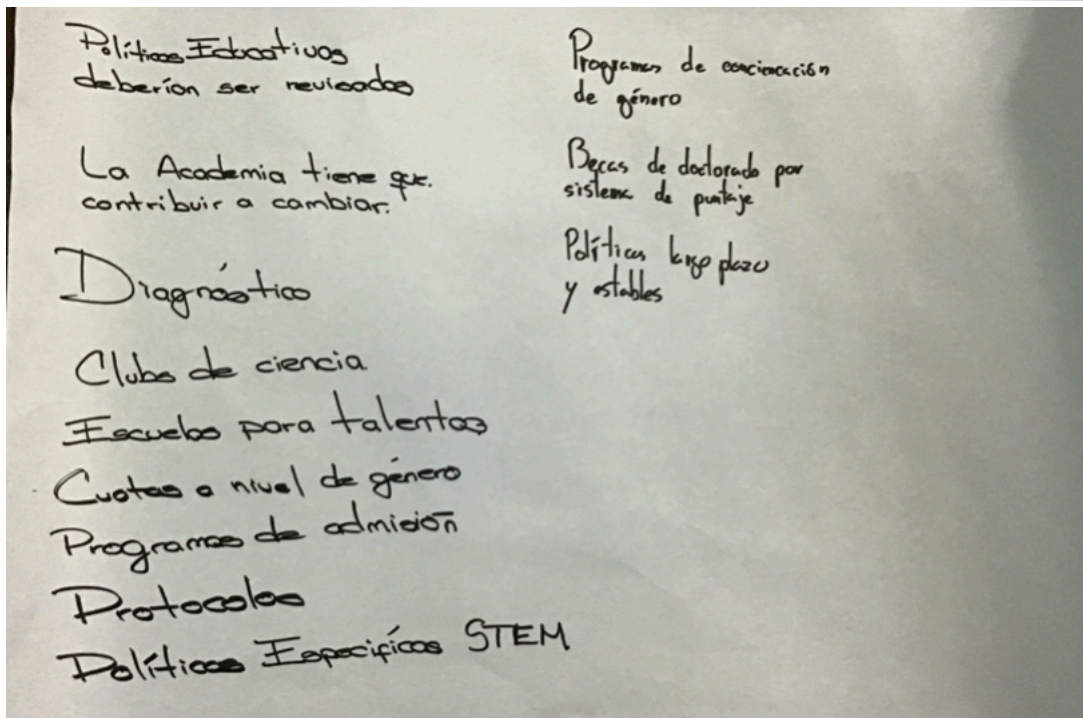 Políticas Educativas
deberían ser revisadas
La Academia tiene que.
contribuir a cambiar.
Diagnóstico
Clubs de ciencia
Escuelas para talentos
Cuotas a nivel de género
Programas de admisión
Protocolos
Políticas Específicas STEM
Programas de concienciación
de género
Becas de doctorado por
sistema de puntaje
Políticas largo plazo
y estables